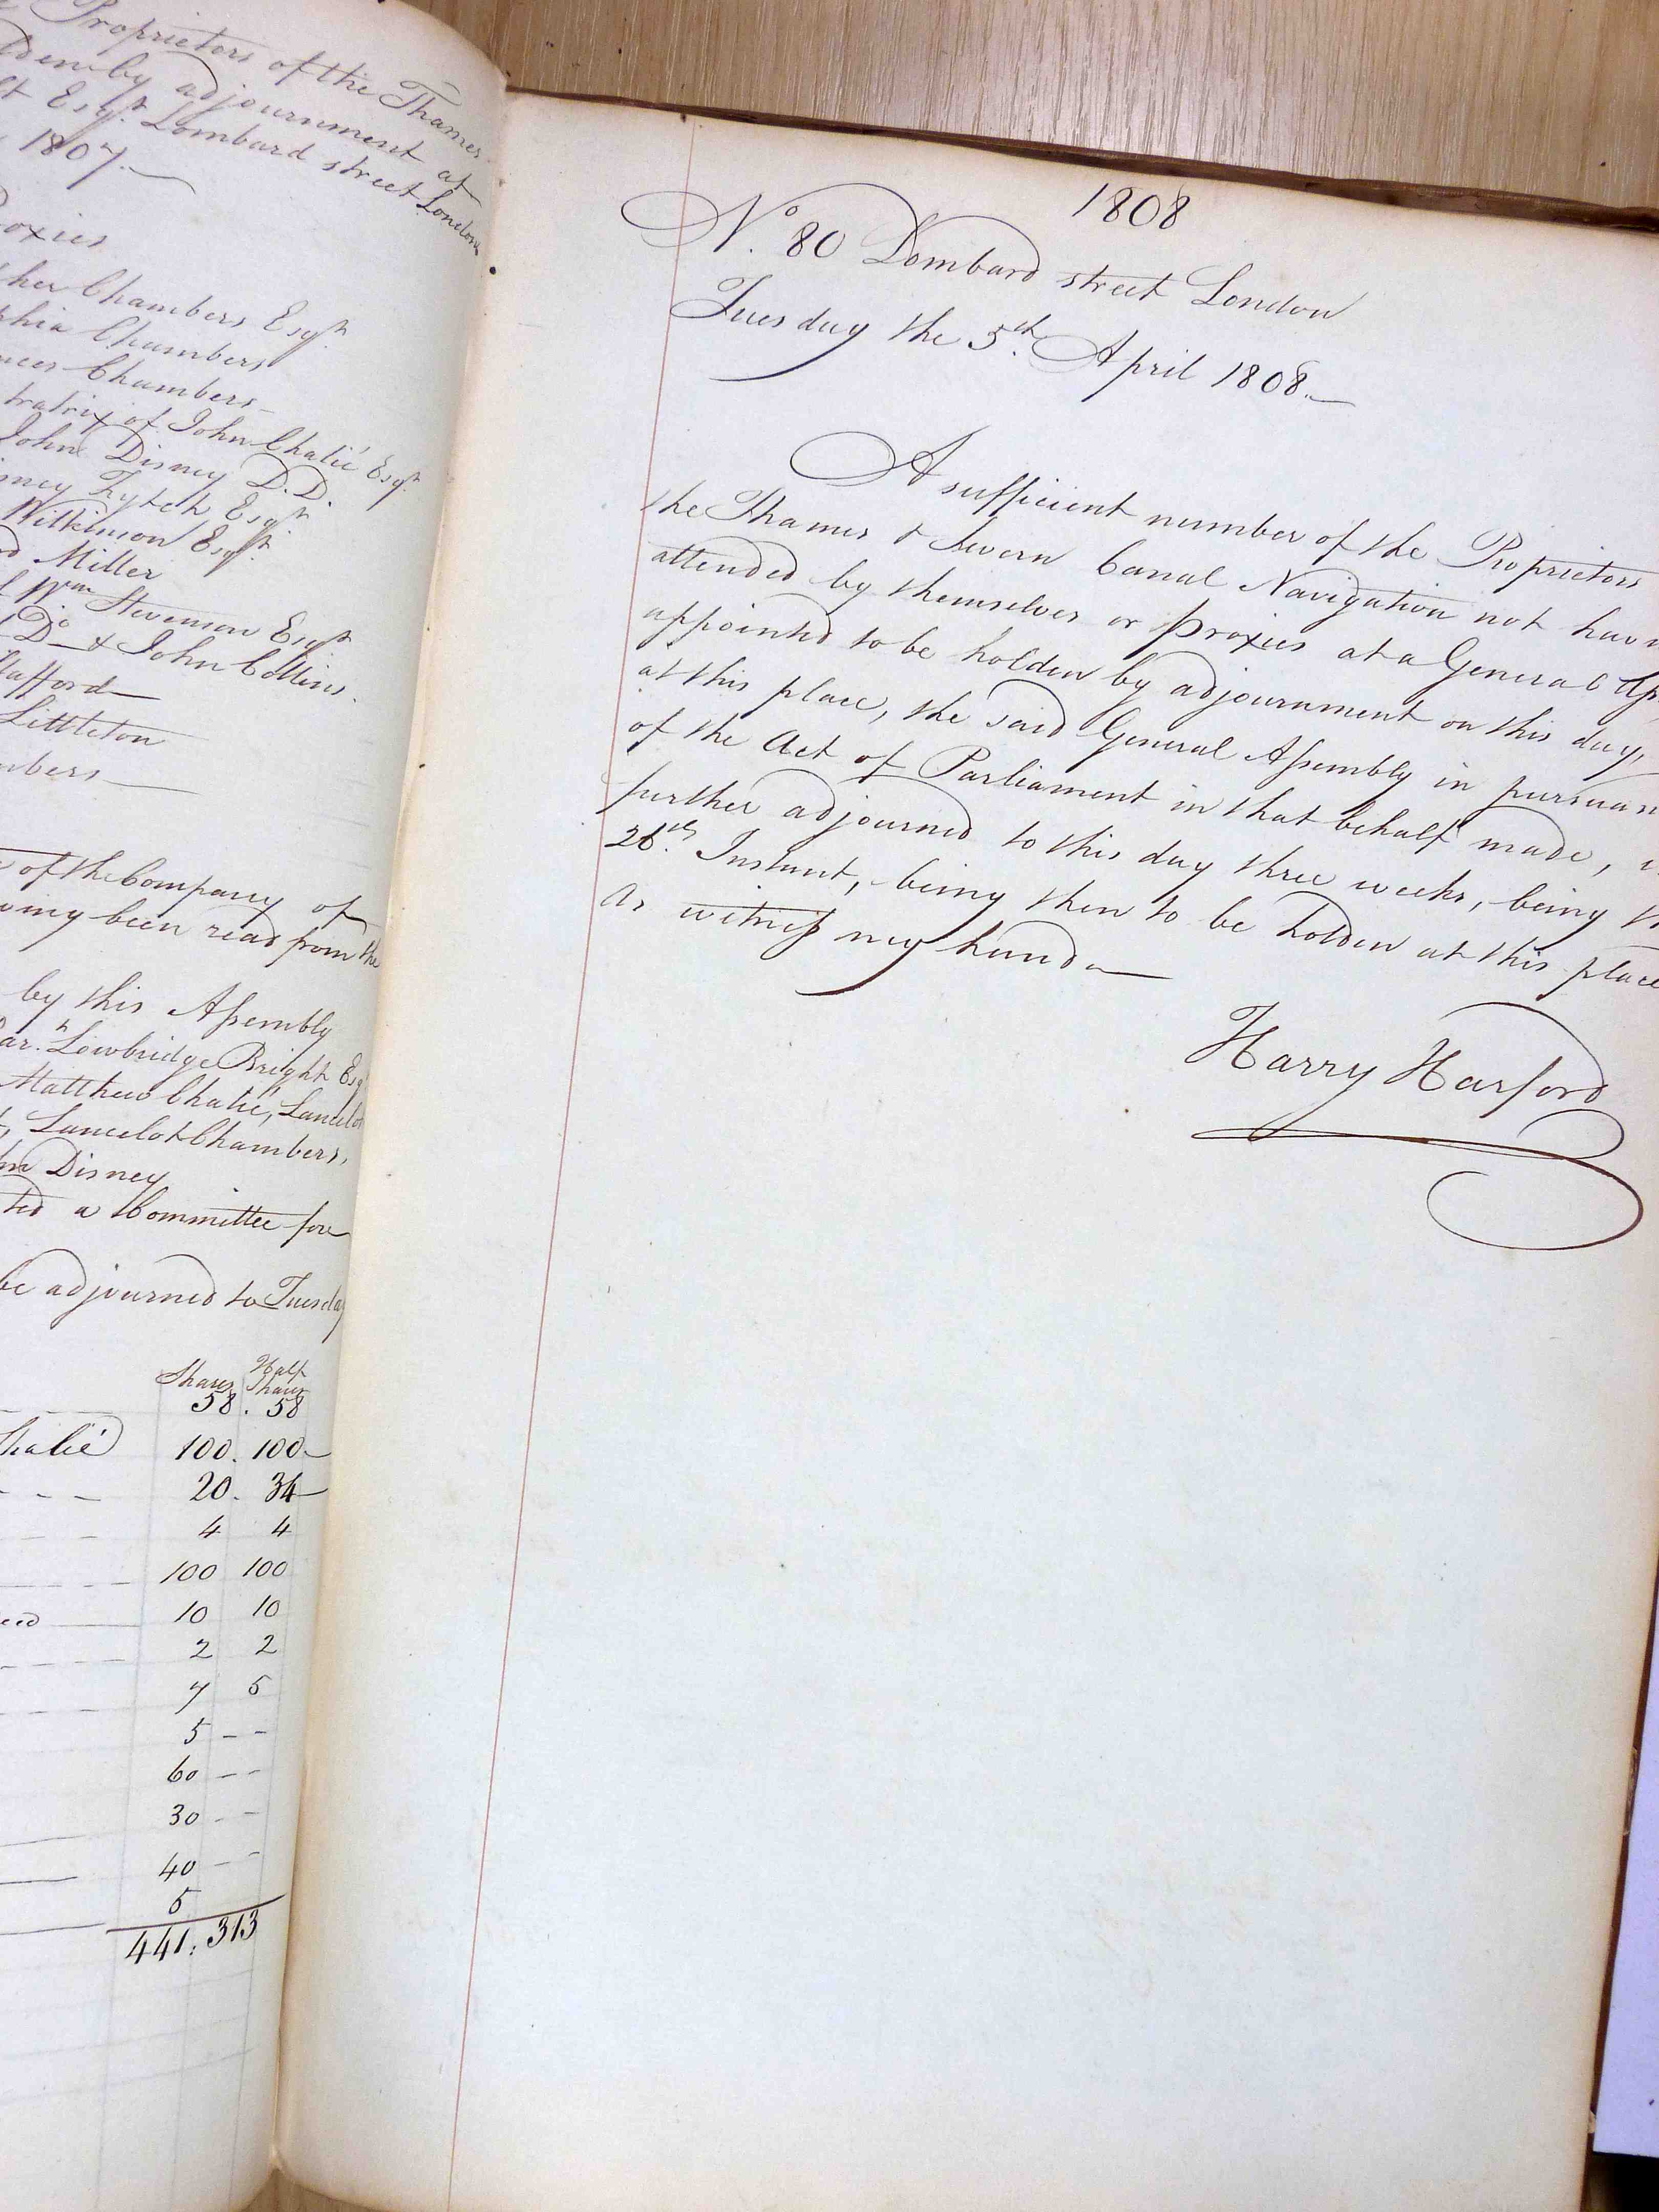 Proprietors of the Thames
by adjournment at
Esqr. Lombard street London
1807.
Chambers Esqr.
Chambers
Chambers
of John Chalié Esqr.
John Disney D.D.
Esqr.
Wilkinson Esqr.
Miller
Wm. Stevenson Esqr.
Do. & John Collins.
Littleton
of the Company of
been read from the
by this Assembly
Lowbridge Bright
Matthew Chalié,
Lancelot Chambers,
Disney
a Committee for
be adjourned to Tuesday
Shares Half Shares
58. 58
100. 100
20. 34
4 4
100 100
10 10
2 2
7 5
5 - -
60 - -
30 - -
40 - -
5
441: 313
1808
No. 80 Lombard street London
Tuesday the 5th. April 1808.
A sufficient number of the Proprietors
the Thames & Severn Canal Navigation not
attended by themselves or proxies at a General
appointed to be holden by adjournment on this day,
at this place, the said General Assembly in
of the Act of Parliament in that behalf made,
further adjourned to this day three weeks, being
26th. Instant, being then to be holden at this place
As witness my hand
Harry Harford